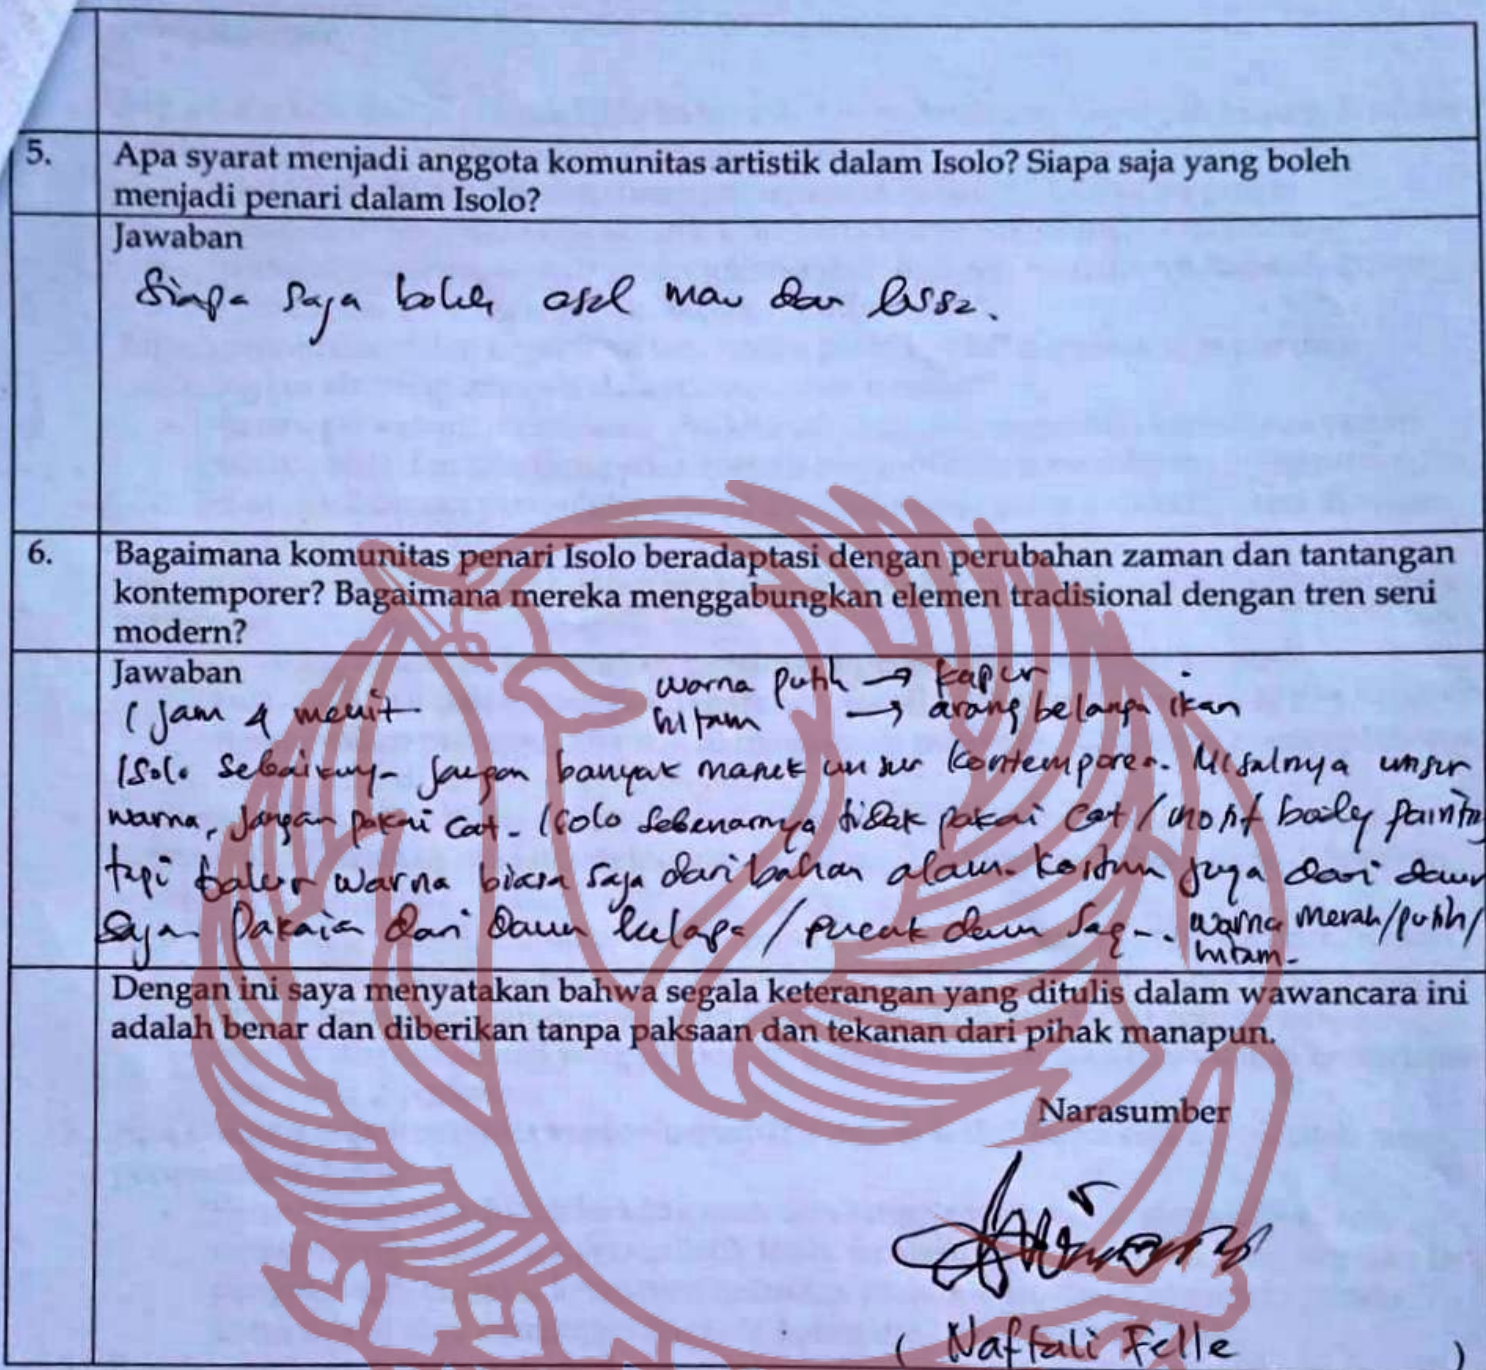 5. Apa syarat menjadi anggota komunitas artistik dalam Isolo? Siapa saja yang boleh
menjadi penari dalam Isolo?
Jawaban
Siapa saja boleh asal mau dan bisa.
6. Bagaimana komunitas penari Isolo beradaptasi dengan perubahan zaman dan tantangan
kontemporer? Bagaimana mereka menggabungkan elemen tradisional dengan tren seni
modern?
Jawaban
warna putih → kapur
1 jam 4 menit
hitam → arang belanga ikan
Isolo sebaiknya jangan banyak unsur kontemporer. Misalnya unsur
warna, jangan pakai cat. Isolo sebenarnya tidak pakai cat / motif body painting
tapi balur warna biasa saja dari bahan alam. Kostum juga dari daun
saja. Pakaian dari daun kelapa / pucuk daun sagu. warna merah/putih/
hitam.
Dengan ini saya menyatakan bahwa segala keterangan yang ditulis dalam wawancara ini
adalah benar dan diberikan tanpa paksaan dan tekanan dari pihak manapun.
Narasumber
( Naftali Felle )